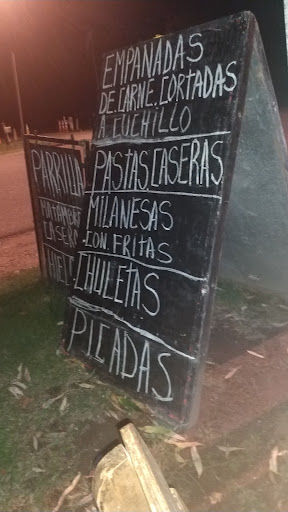 EMPANADAS
DE CARNE. CORTADAS
A CUCHILLO
PASTAS CASERAS
MILANESAS
CON FRITAS
CHULETAS
PICADAS
PARRILLA
MATAMBRE
CASERO